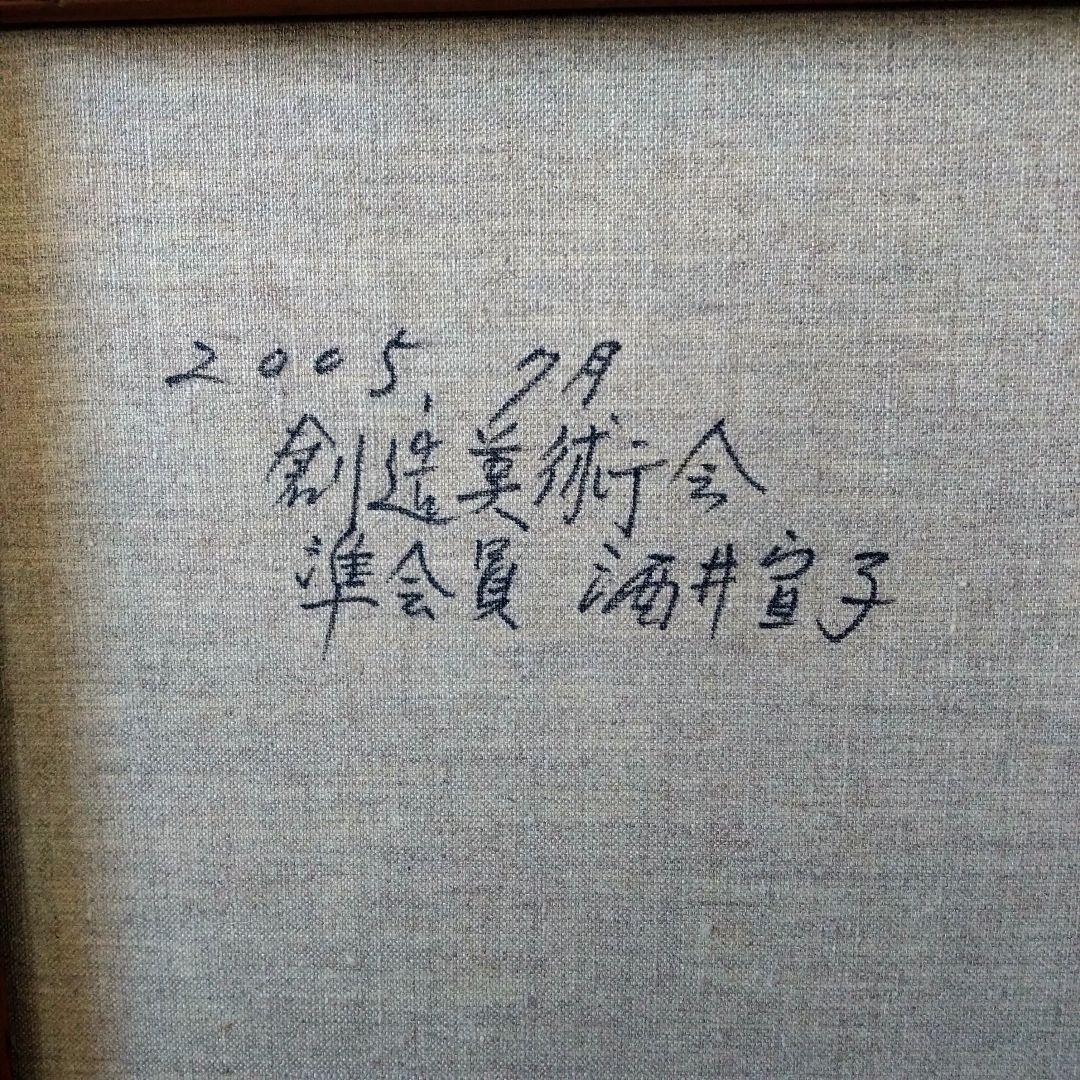 2005, 7月
創造美術会
準会員 酒井宣子